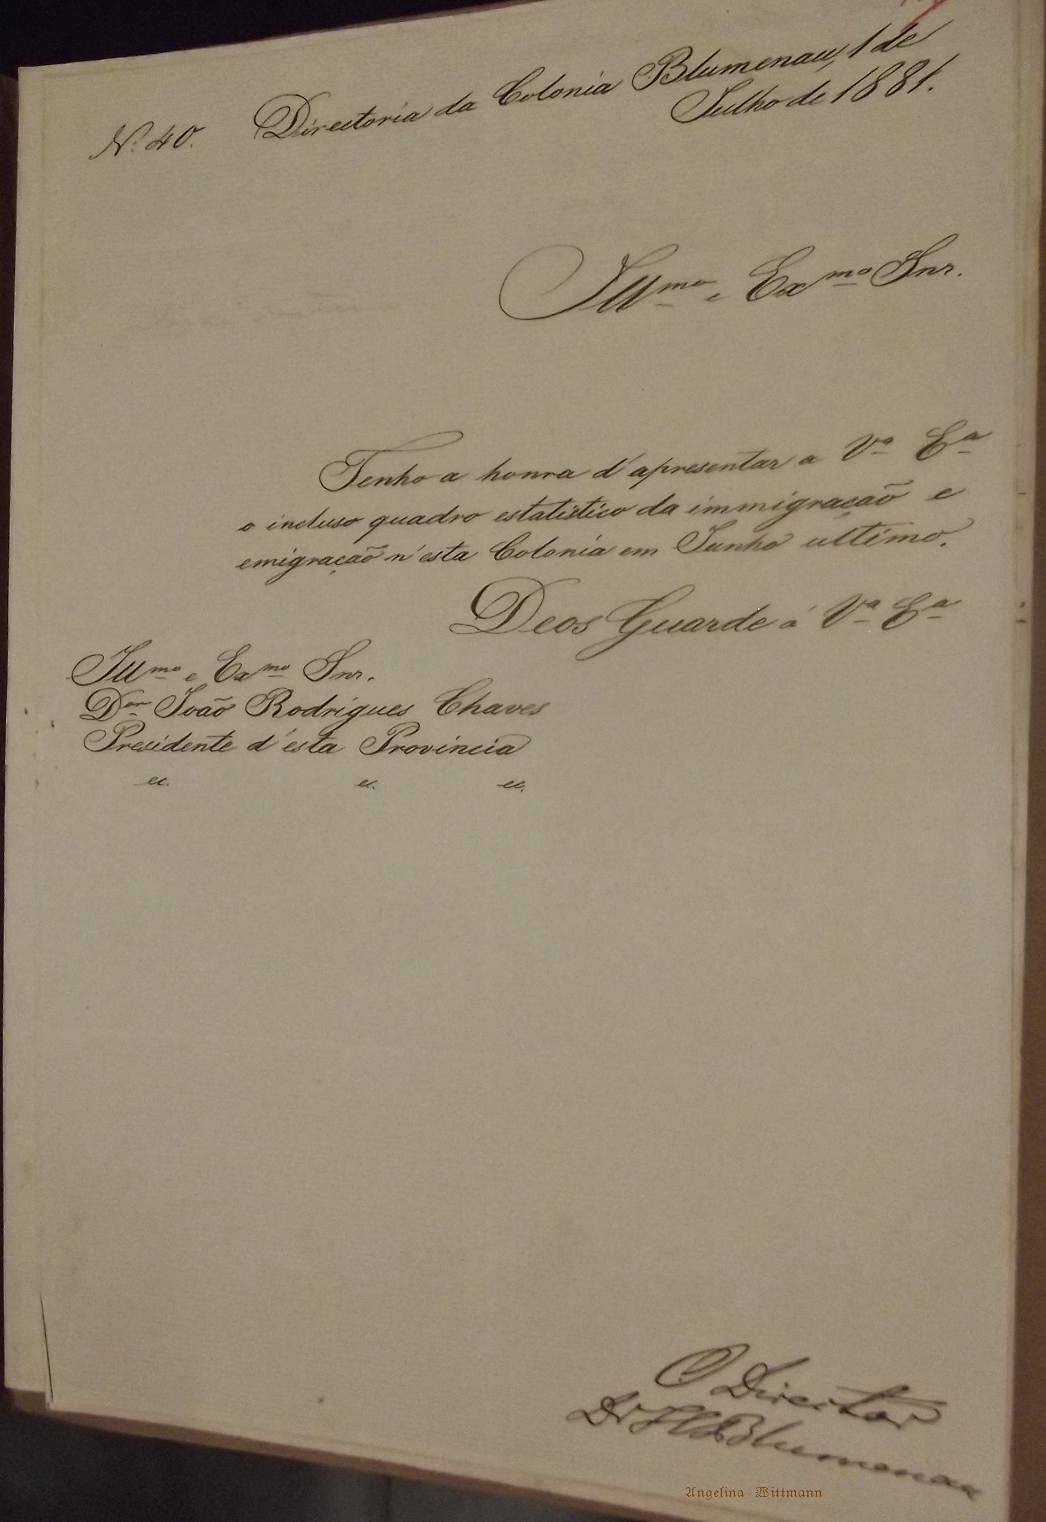 Nº 40. Directoria da Colonia Blumenau, 1 de
Julho de 1881.
Illmo e Exmo Snr.
Tenho a honra d'apresentar a Vª Eª
o incluso quadro estatistico da immigração e
emigração n'esta Colonia em Junho ultimo.
Deos Guarde á Vª Eª
Illmo e Exmo Snr.
Dor João Rodrigues Chaves
Presidente d'esta Provincia
&c. &c. &c.
O Director
Dr H Blumenau
Angelina Wittmann